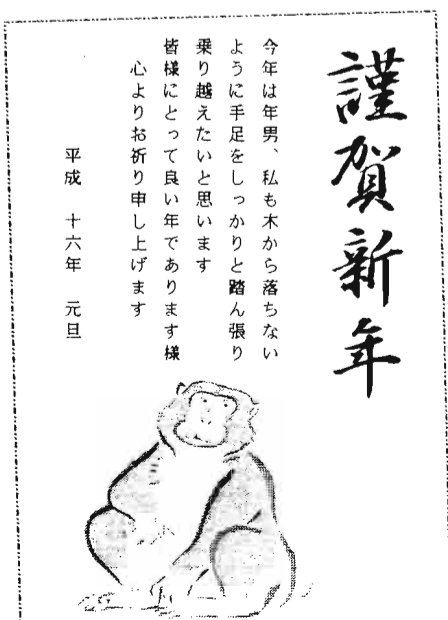 謹賀新年
今年は年男、私も木から落ちない
ように手足をしっかりと踏ん張り
乗り越えたいと思います
皆様にとって良い年であります様
心よりお祈り申し上げます
平成 十六年 元旦